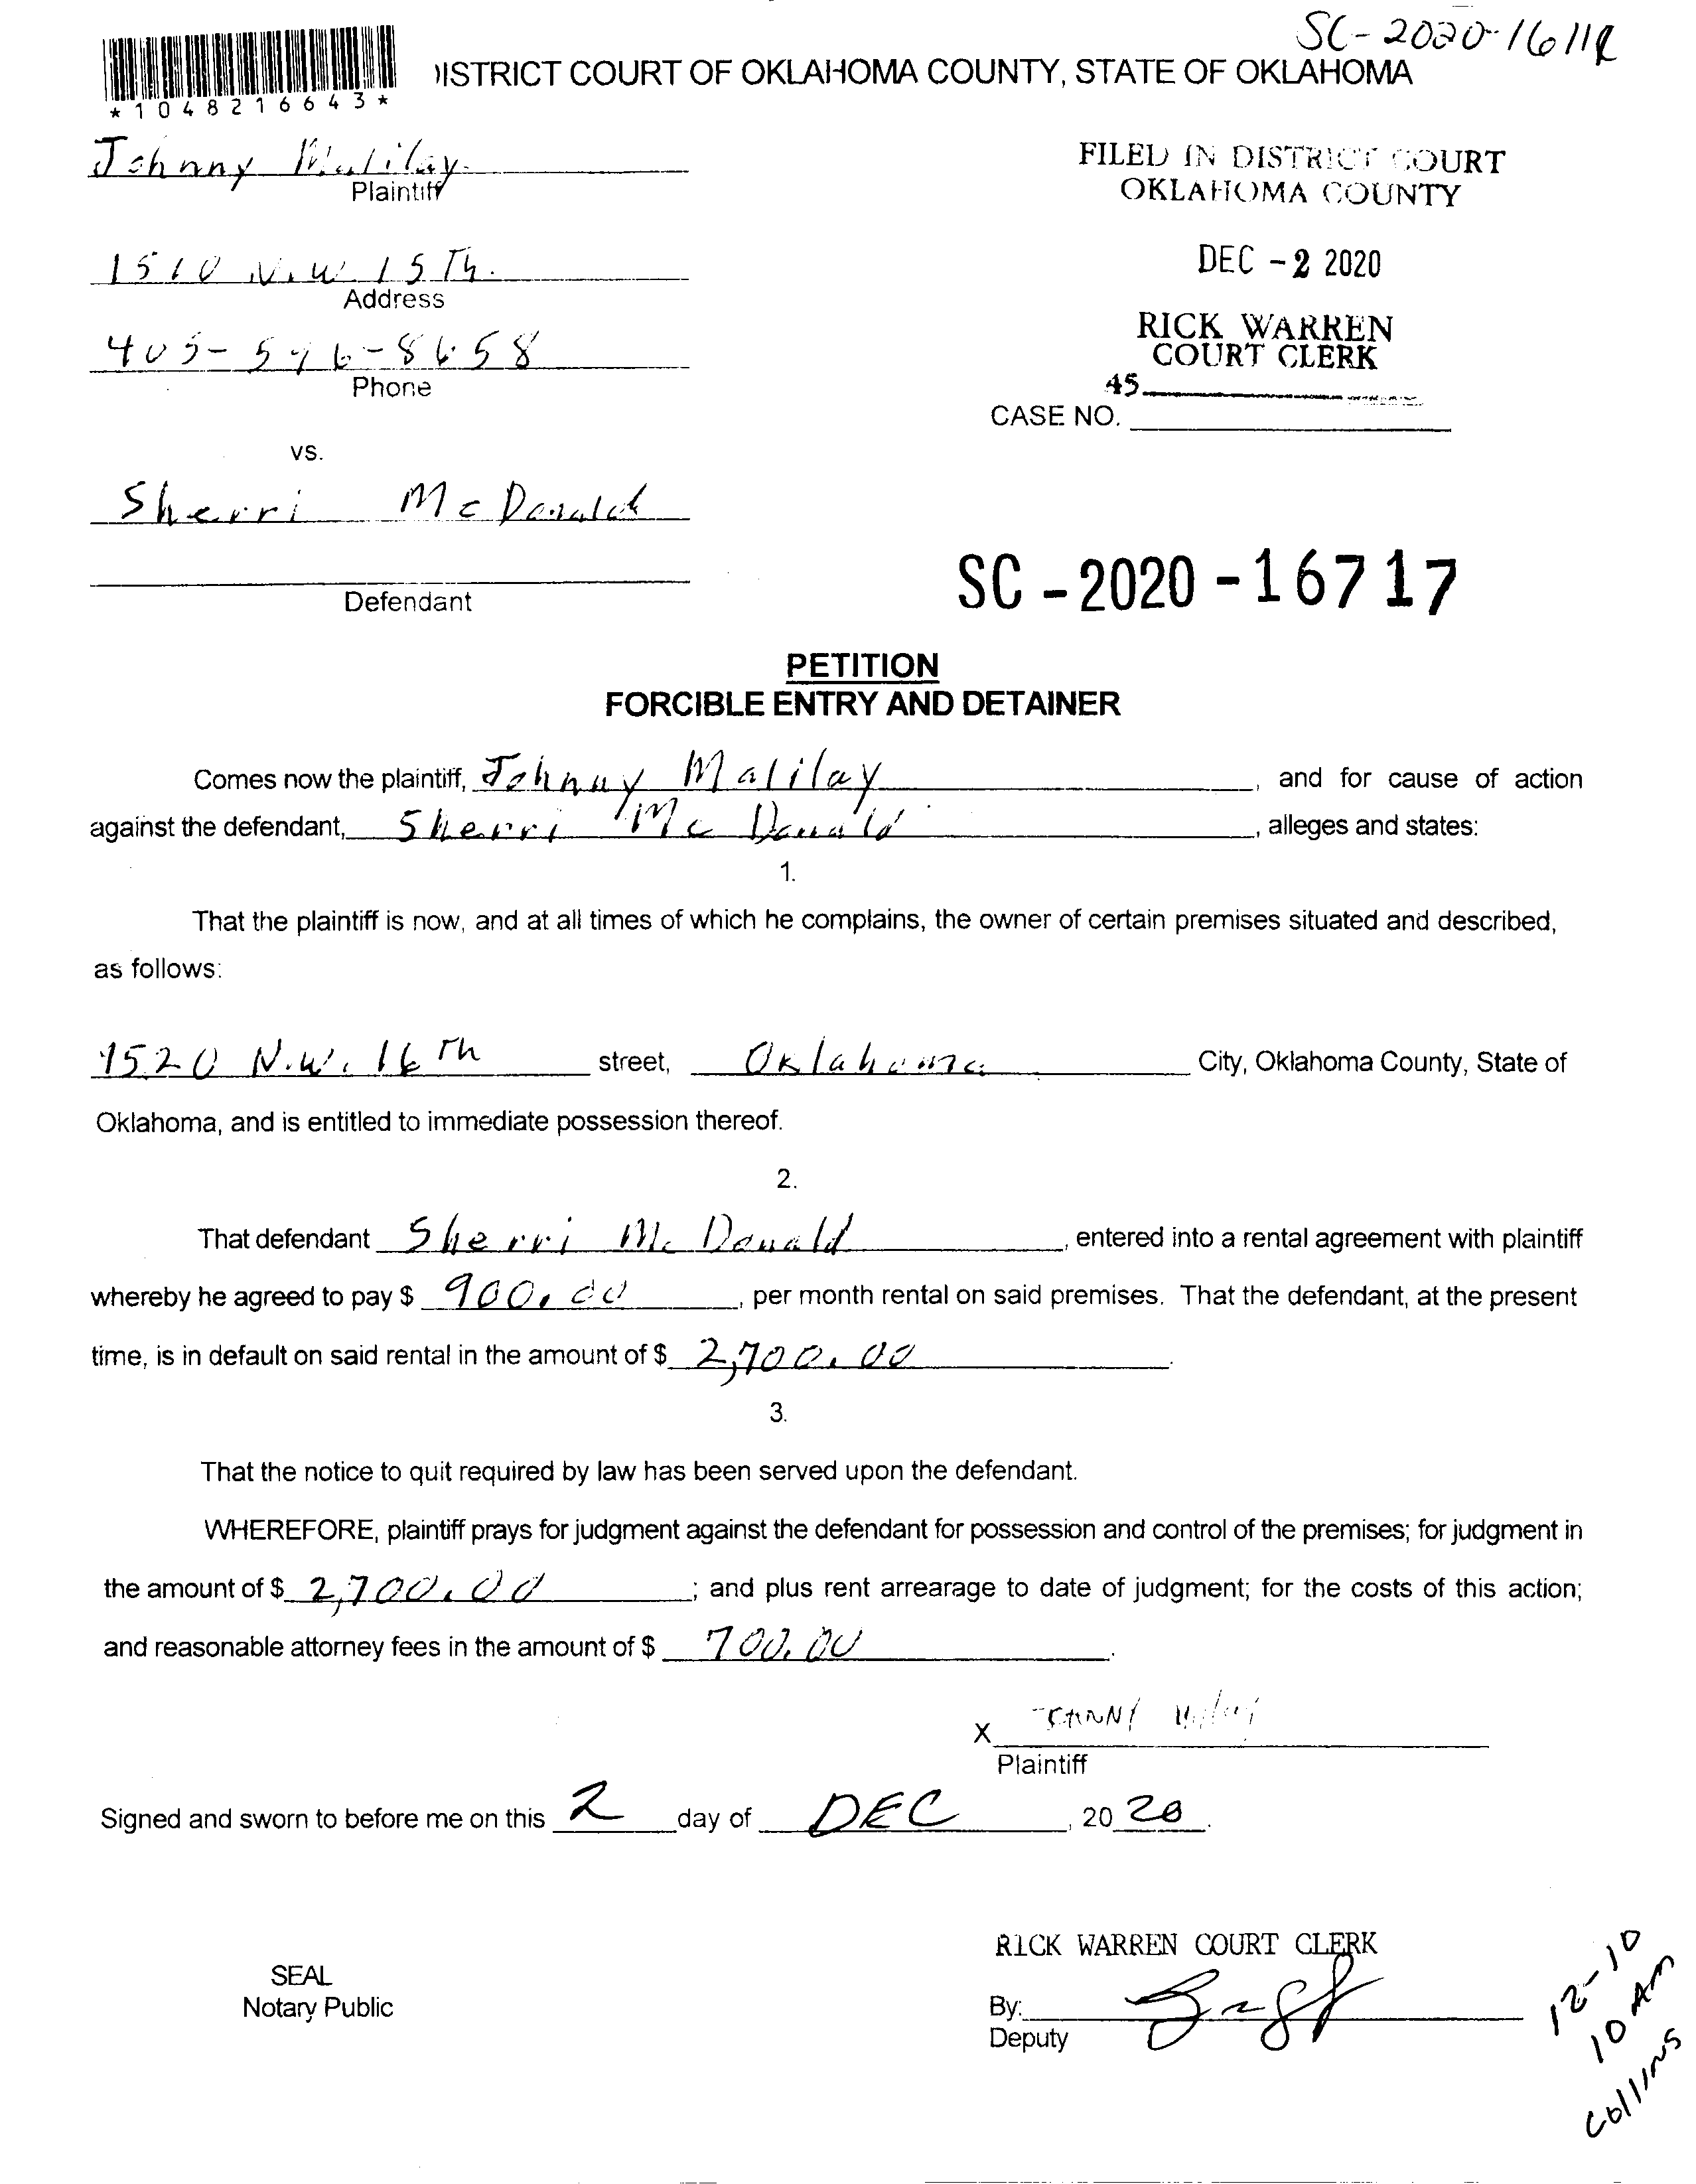 SC-2020-16118
*1048216643*
DISTRICT COURT OF OKLAHOMA COUNTY, STATE OF OKLAHOMA
Johnny Malilay
Plaintiff
FILED IN DISTRICT COURT
OKLAHOMA COUNTY
1510 N.W. 15Th.
Address
DEC -2 2020
RICK WARREN
COURT CLERK
405-596-8658
Phone
45
CASE NO.
vs.
Sherri McDonald
Defendant
SC-2020-16717
PETITION
FORCIBLE ENTRY AND DETAINER
Comes now the plaintiff, Johnny Malilay, and for cause of action
against the defendant, Sherri McDonald, alleges and states:
1.
That the plaintiff is now, and at all times of which he complains, the owner of certain premises situated and described,
as follows:
1520 N.W. 16Th street, Oklahoma City, Oklahoma County, State of
Oklahoma, and is entitled to immediate possession thereof.
2.
That defendant Sherri McDonald, entered into a rental agreement with plaintiff
whereby he agreed to pay $ 900.00, per month rental on said premises. That the defendant, at the present
time, is in default on said rental in the amount of $ 2,700.00.
3.
That the notice to quit required by law has been served upon the defendant.
WHEREFORE, plaintiff prays for judgment against the defendant for possession and control of the premises; for judgment in
the amount of $ 2,700.00; and plus rent arrearage to date of judgment; for the costs of this action;
and reasonable attorney fees in the amount of $ 700.00.
X
Plaintiff
Signed and sworn to before me on this 2 day of DEC, 2020.
RICK WARREN COURT CLERK
SEAL
Notary Public
By:
Deputy
12-10
10 AM
Collins